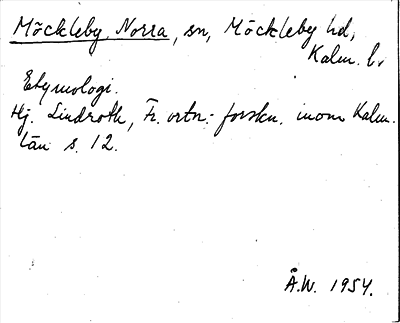 Möckleby, Norra, sn, Möckleby hd,
Kalm. l.
Etymologi.
Hj. Lindroth, Fr. ortn.-forskn. inom Kalm.
län s. 12.
Å.W. 1954.